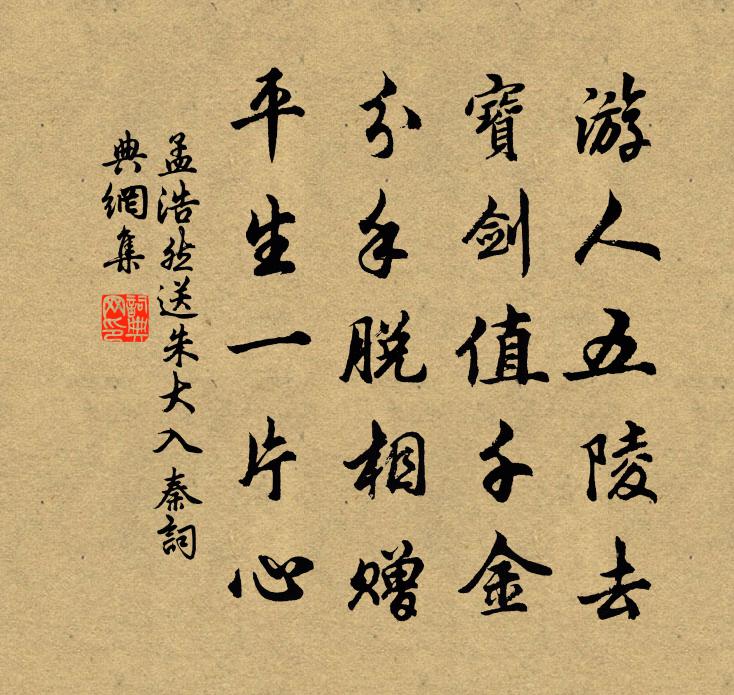 游人五陵去
寶劍值千金
分手脫相贈
平生一片心
孟浩然送朱大入秦詞
典網集
詞典
网印